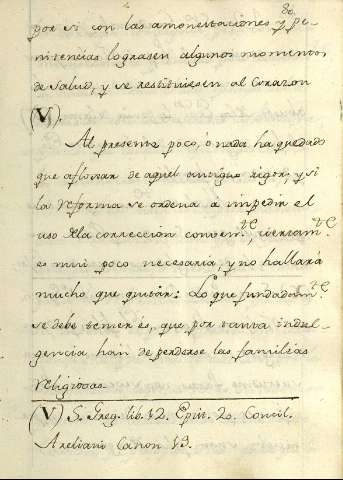 80.
por si con las amonestaciones y pe-
nitencias lograsen algunos momentos
de salud, y se restituiesen al Corazon
(V).
Al presente poco, ó nada ha quedado
que afloxar de aquel antiguo rigor, y si
la reforma se ordena á impedir el
uso de la correccion conven.te, ciertam.te
es mui poco necesaria, y no hallará
mucho que quitar: Lo que fundadam.te
se debe temer és, que por tanta indul-
gencia han de perderse las familias
religiosas.
(V) S. Greg. lib. 12. Epist. 20. Concil.
Areliani Canon 13.